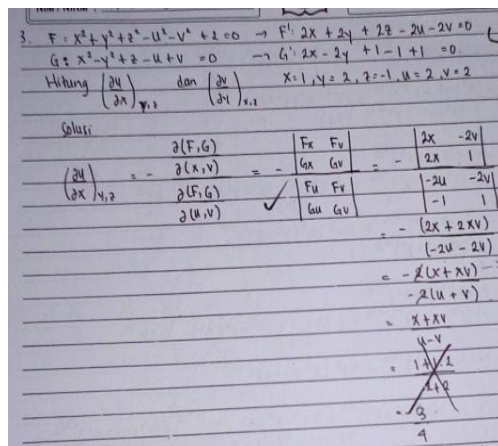 3. F: x² + y² + z² - u² - v² + 2 = 0 → F': 2x + 2y + 2z - 2u - 2v = 0
G: x² - y² + z - u + v = 0 → G': 2x - 2y + 1 - 1 + 1 = 0.
Hitung (∂u/∂x)y,z dan (∂v/∂y)x,z x=1, y=2, z=-1, u=2, v=2
Solusi
(∂u/∂x)y,z = - ∂(F,G)/∂(x,v) / ∂(F,G)/∂(u,v) = - |Fx Fv| |Gx Gv| / |Fu Fv| |Gu Gv| = - |2x -2v| |2x 1| / |-2u -2v| |-1 1|
= - (2x + 2xv) / (-2u - 2v)
= - 2(x + xv) / - 2(u + v)
= x + xv / u - v
= 1 + 1.2 / 2+2
= 3 / 4